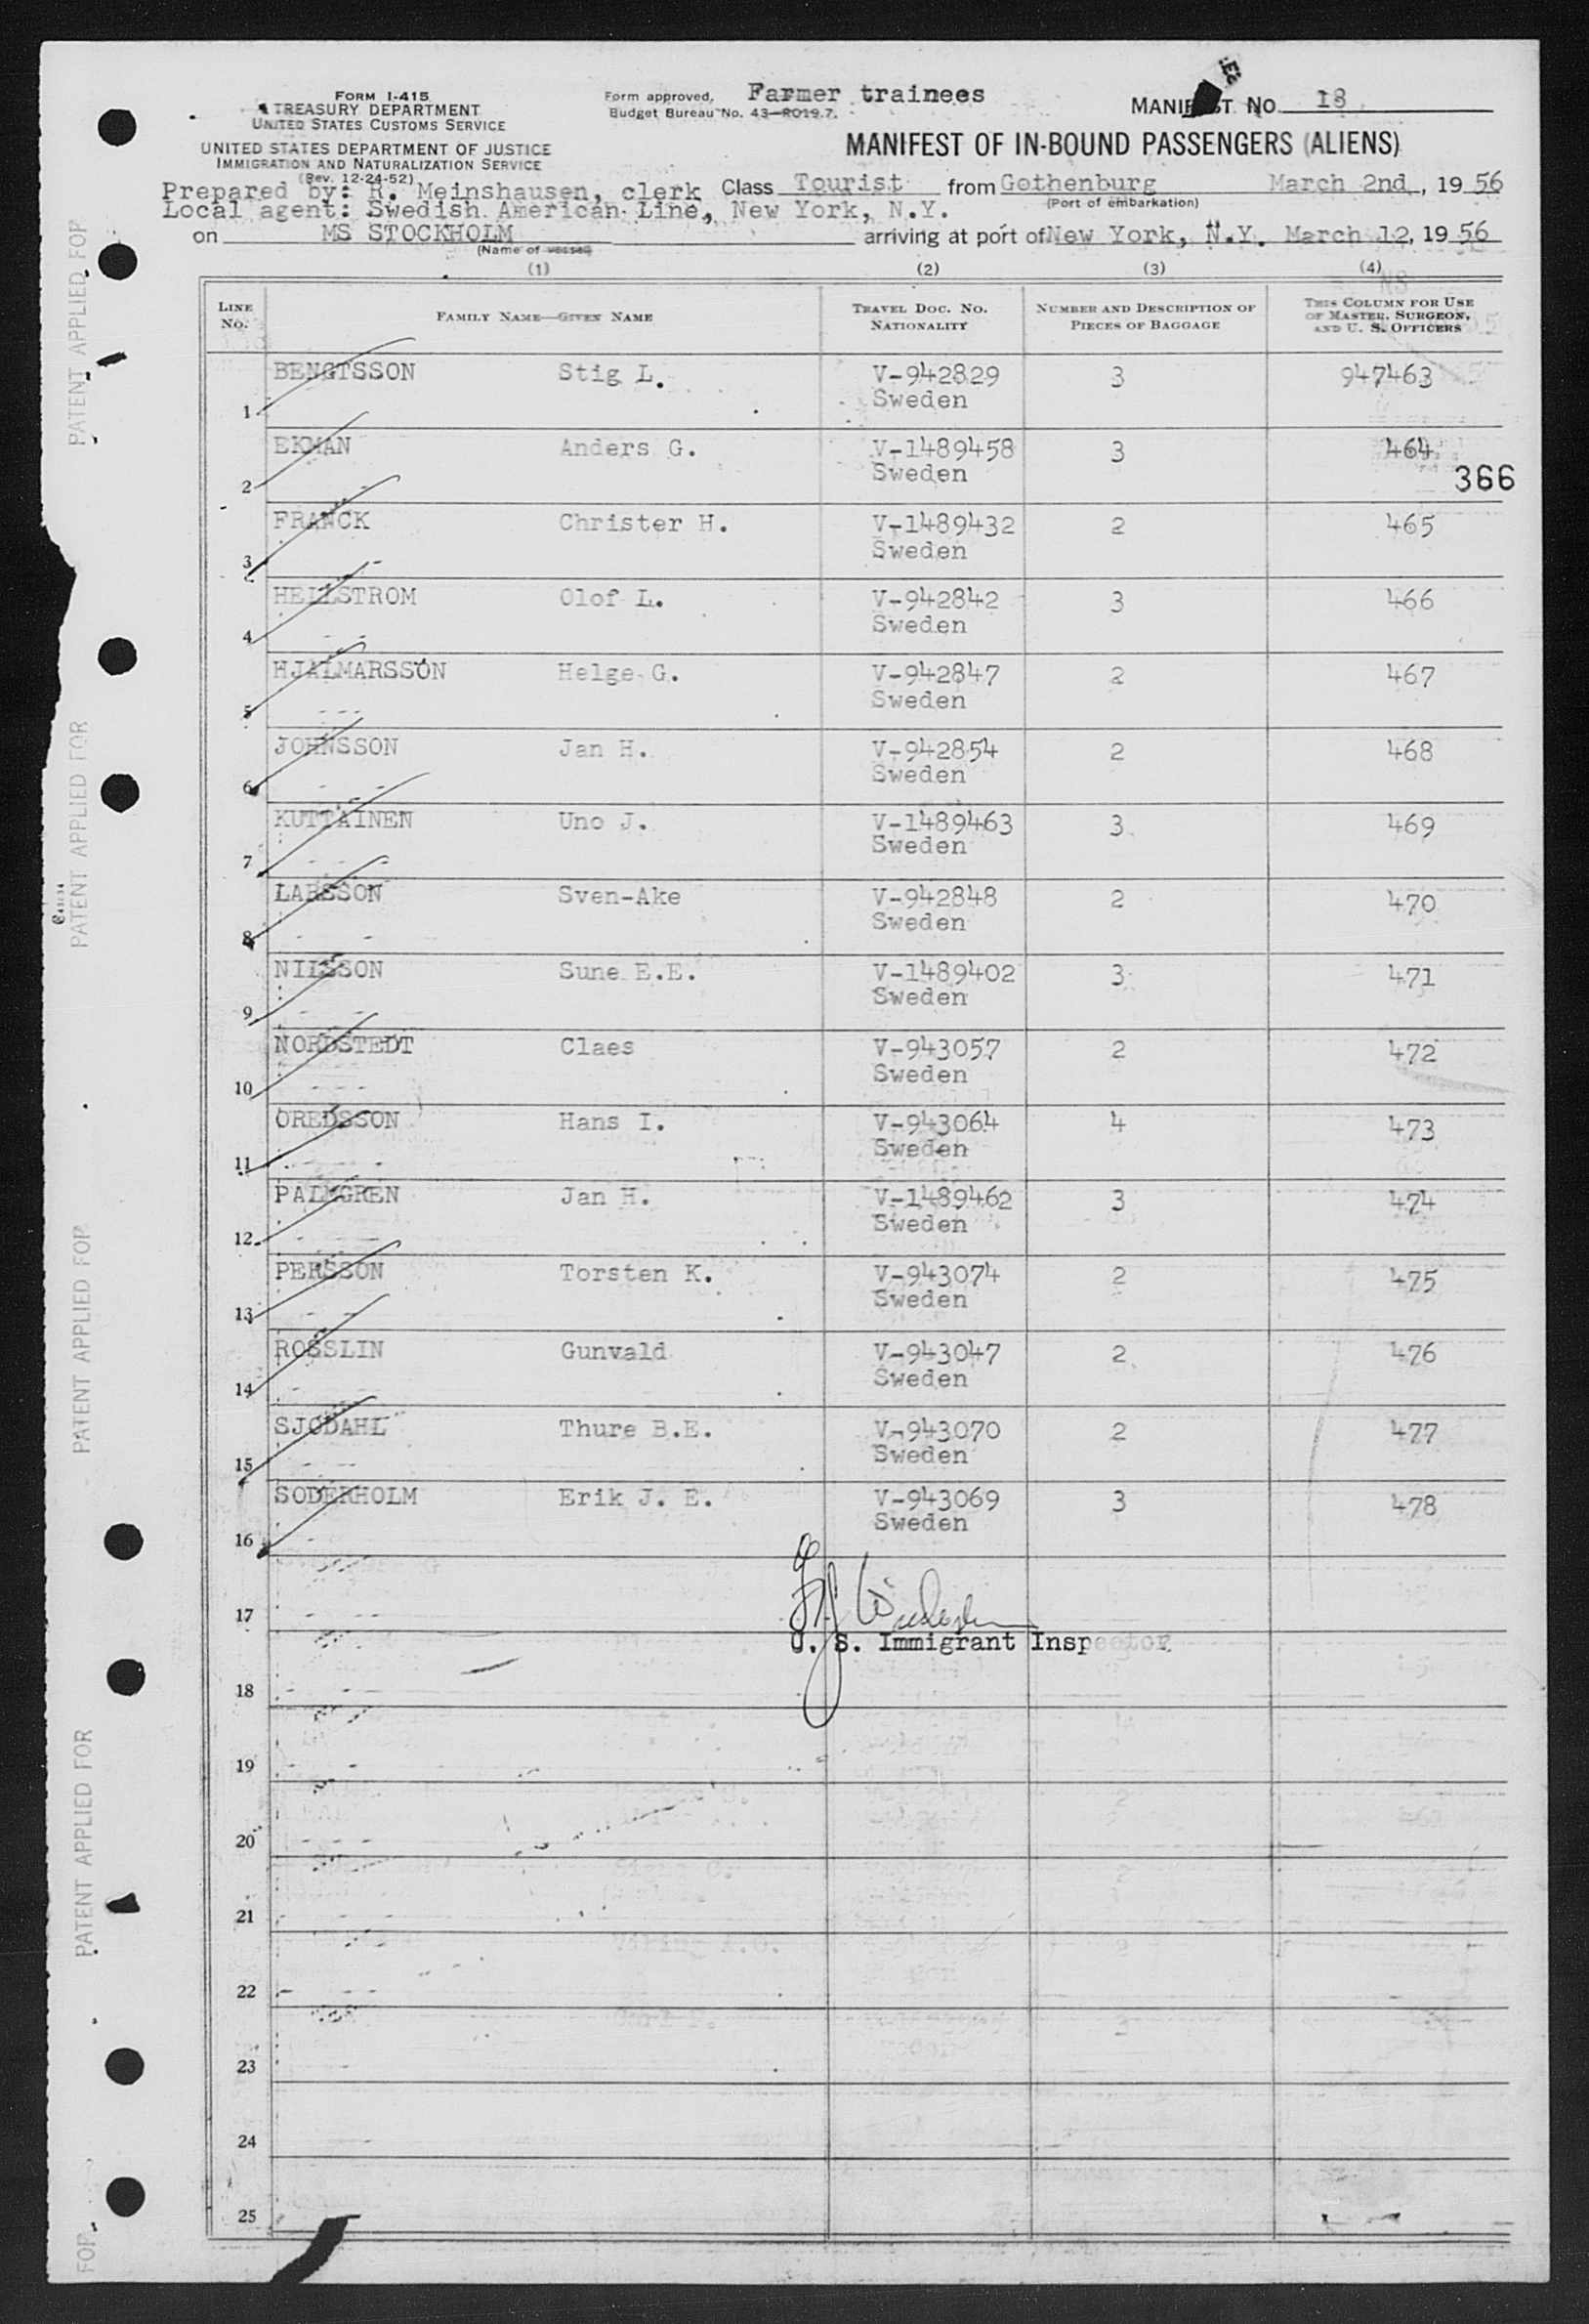 FORM I-415
TREASURY DEPARTMENT
UNITED STATES CUSTOMS SERVICE
UNITED STATES DEPARTMENT OF JUSTICE
IMMIGRATION AND NATURALIZATION SERVICE
(Rev. 12-24-52)
Form approved. Farmer trainees
Budget Bureau No. 43-R019.7.
MANIFEST NO. 18
MANIFEST OF IN-BOUND PASSENGERS (ALIENS)
Prepared by: R. Meinshausen, clerk Class Tourist from Gothenburg March 2nd, 19 56
(Port of embarkation)
Local agent: Swedish American Line, New York, N.Y.
on MS STOCKHOLM arriving at port of New York, N.Y. March 12, 19 56
(Name of vessel)
(1) (2) (3) (4)
LINE NO. FAMILY NAME—GIVEN NAME TRAVEL DOC. NO. NATIONALITY NUMBER AND DESCRIPTION OF PIECES OF BAGGAGE THIS COLUMN FOR USE OF MASTER, SURGEON, AND U. S. OFFICERS
1 BENGTSSON Stig L. V-942829 Sweden 3 947463
2 EKMAN Anders G. V-1489458 Sweden 3 464
366
3 FRANCK Christer H. V-1489432 Sweden 2 465
4 HELLSTROM Olof L. V-942842 Sweden 3 466
5 HJALMARSSON Helge G. V-942847 Sweden 2 467
6 JOHNSSON Jan H. V-942854 Sweden 2 468
7 KUTTAINEN Uno J. V-1489463 Sweden 3 469
8 LARSSON Sven-Ake V-942848 Sweden 2 470
9 NILSSON Sune E.E. V-1489402 Sweden 3 471
10 NORDSTEDT Claes V-943057 Sweden 2 472
11 OREDSSON Hans I. V-943064 Sweden 4 473
12 PALMGREN Jan H. V-1489462 Sweden 3 474
13 PERSSON Torsten K. V-943074 Sweden 2 475
14 ROSSLIN Gunvald V-943047 Sweden 2 476
15 SJODAHL Thure B.E. V-943070 Sweden 2 477
16 SODERHOLM Erik J. E. V-943069 Sweden 3 478
17
U. S. Immigrant Inspector
18
19
20
21
22
23
24
25
PATENT APPLIED FOR
PATENT APPLIED FOR
PATENT APPLIED FOR
PATENT APPLIED FOR
FOR